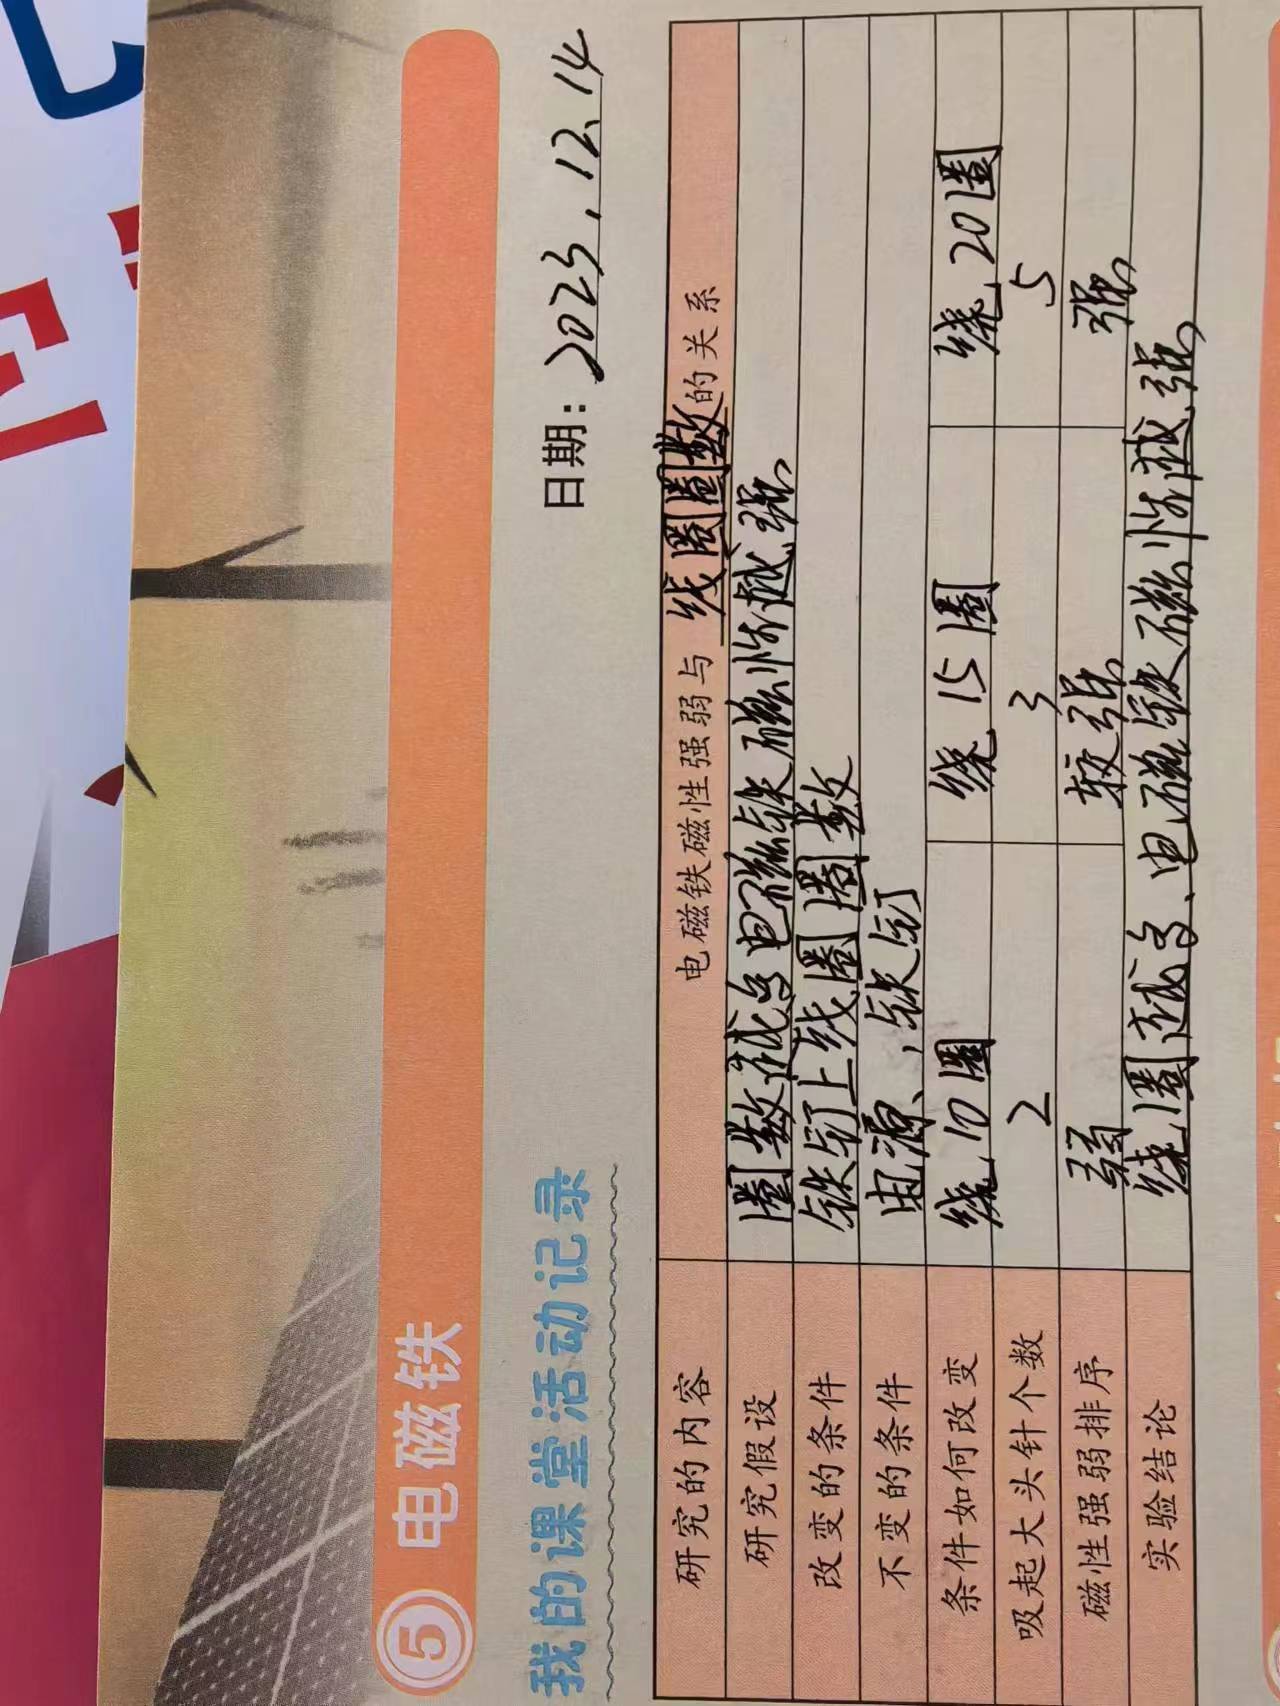 5 电磁铁
我的课堂活动记录
日期：2023.12.14
研究的内容 电磁铁磁性强弱与 线圈圈数 的关系
研究假设 圈数越多电磁铁磁性越强
改变的条件 铁钉上线圈圈数
不变的条件 电源、铁钉
条件如何改变 绕10圈 绕15圈 绕20圈
吸起大头针个数 2 3 5
磁性强弱排序 弱 较强 强
实验结论 绕圈越多、电磁铁磁性越强